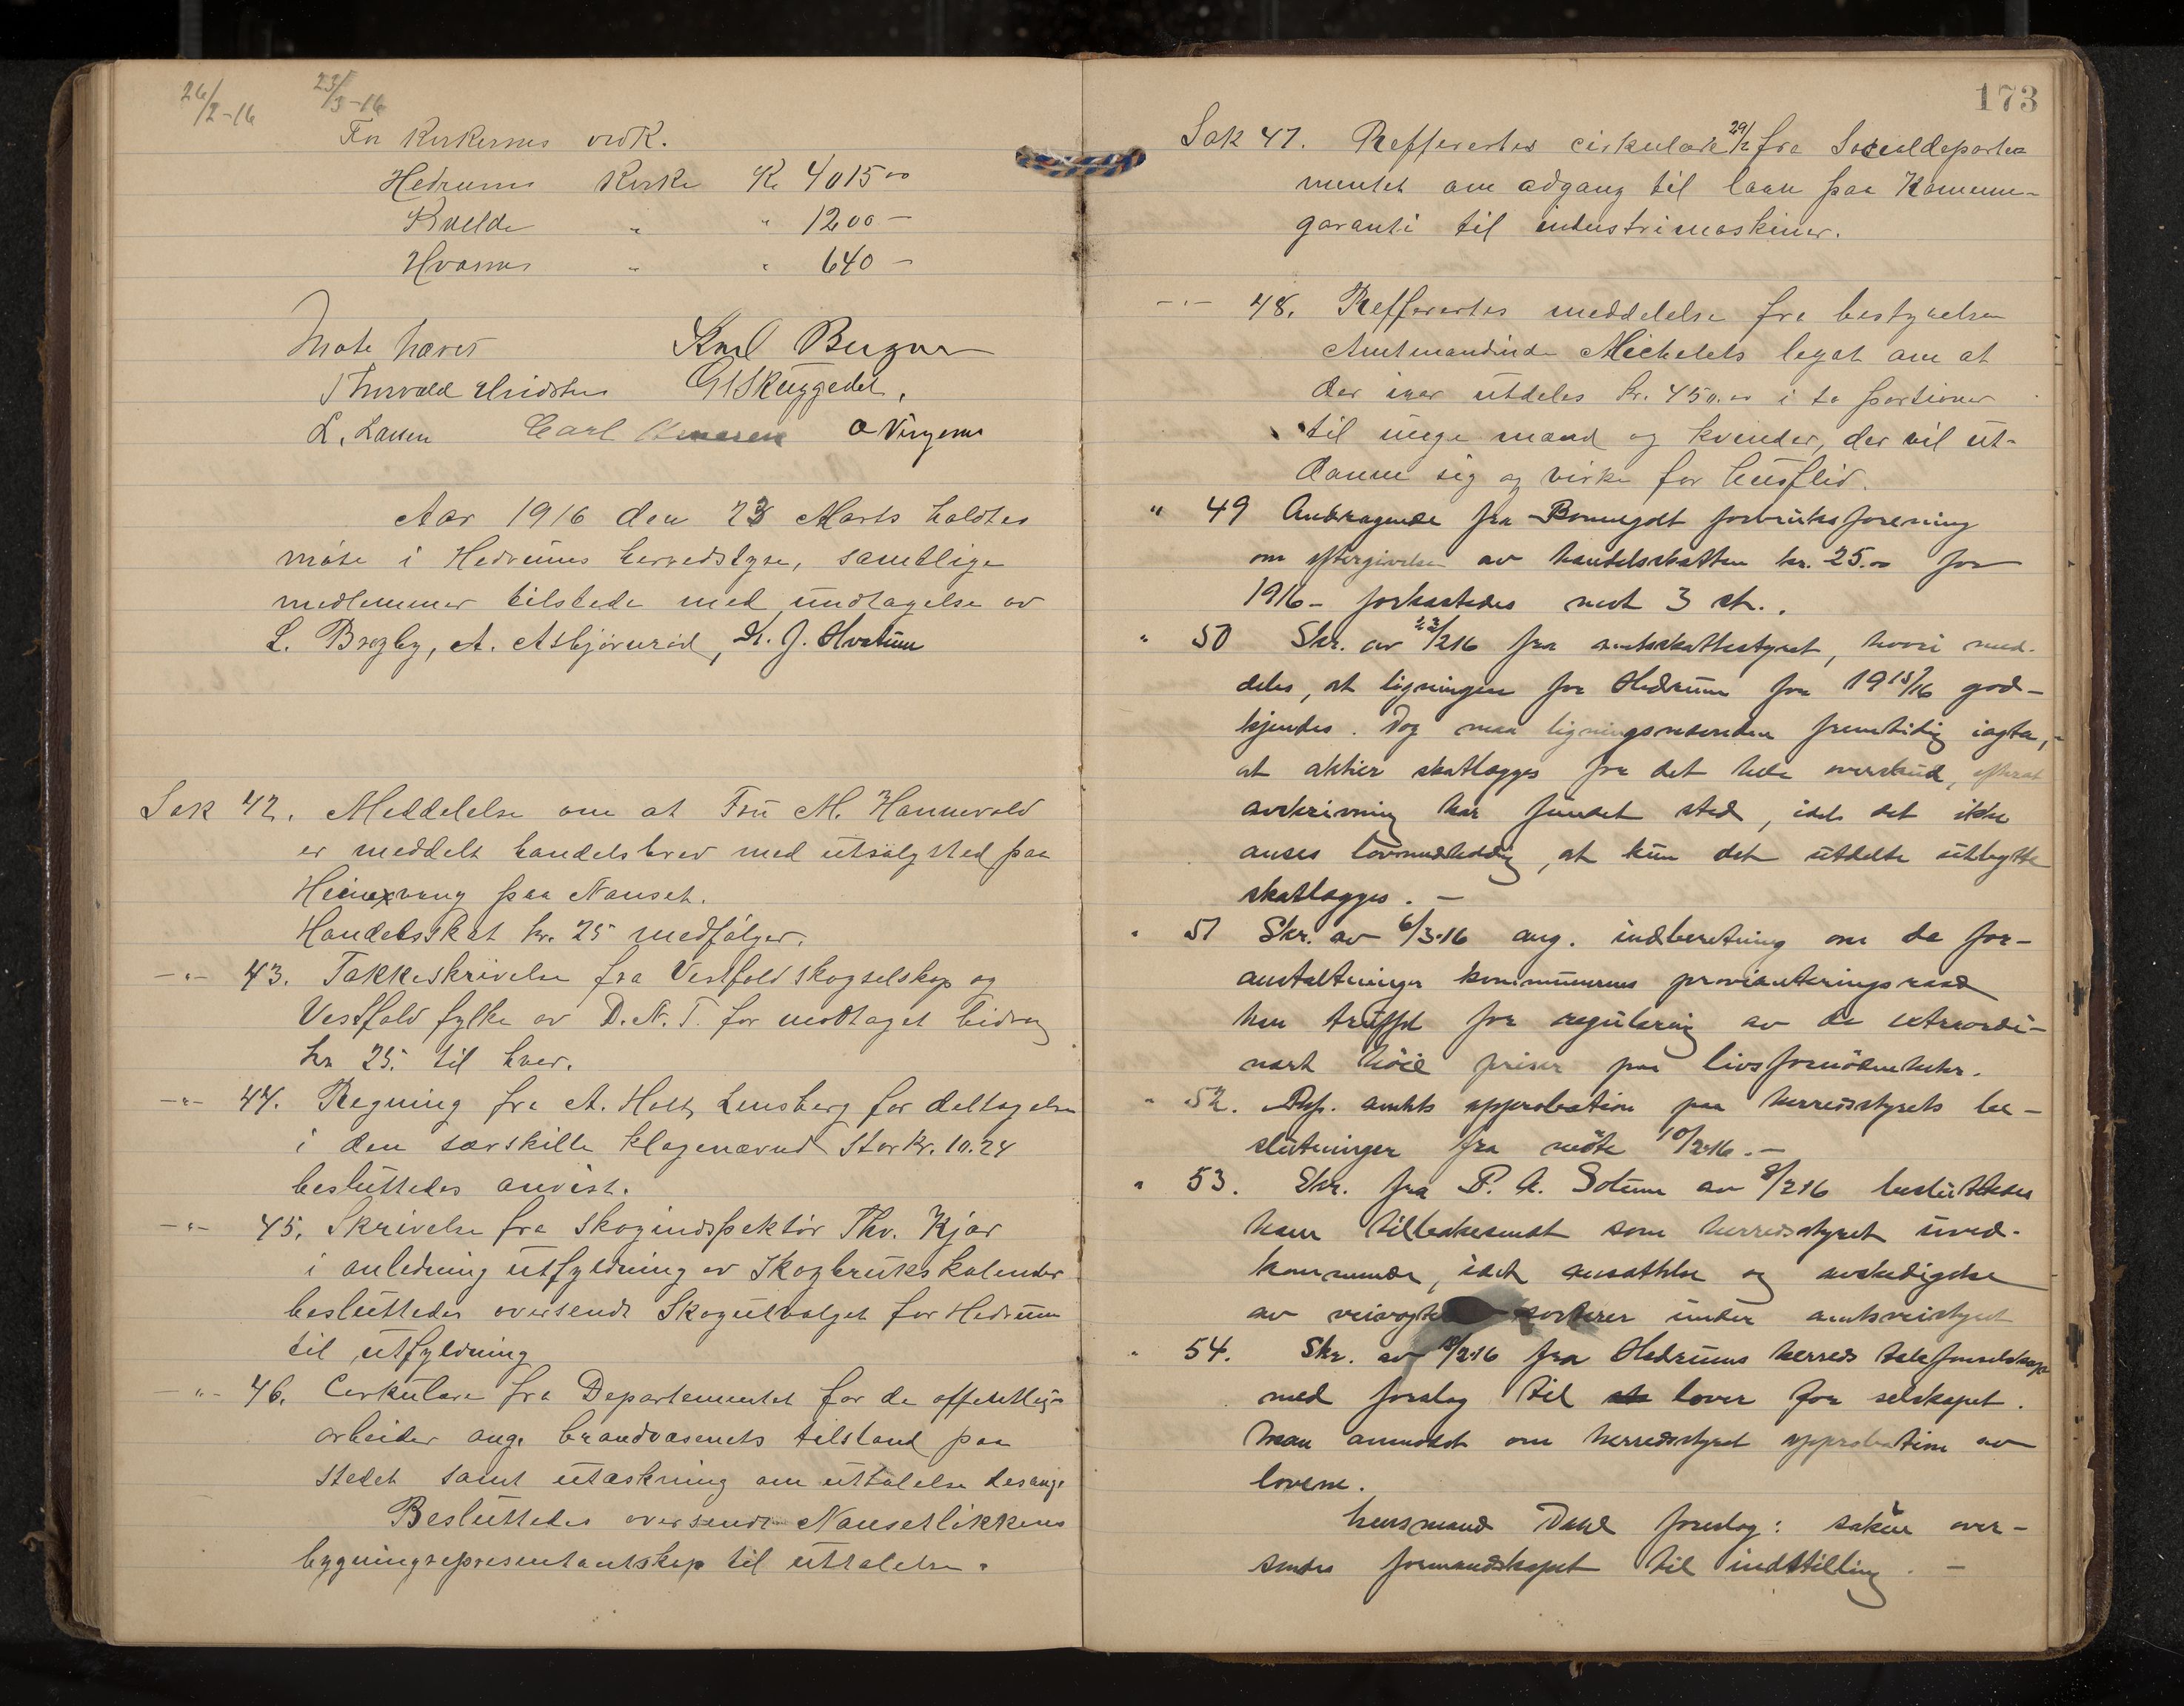 26/2-16 23/3-16
For Kirkernes vedk.
Hedrums Kirke Kr 4015 00
Kvelde " " 1200 -
Hvarnes " " 640 -
Møte hævet Karl Bergan
Thorvald G Skuggedal,
L. Larsen Carl O Vingerne
Aar 1916 den 23 Marts holdtes
møte i Hedrums herredstyre, samtlige
medlemmer tilstede med undtagelse av
L. Brogby, A. Asbjørnrød, Kr. J. Hvatum
Sak 42. Meddelelse om at Fru M. Hannevold
er meddelt handelsbrev med utsalgsted paa
Heimvang paa Nanset.
Handelsskat kr. 25 medfølger.
-"- 43. Takkeskrivelse fra Vestfold Skogselskap og
Vestfold fylke av D.N.T. for modtaget bidrag
kr 25. til hver.
-"- 44. Regning fra A. Holt, Lensberg for deltagelse
i den særskilte klagenævnd stor kr. 10.24
besluttedes anvist.
-"- 45. Skrivelse fra Skogindspektør Thv. Kjær
i anledning utfyldning av Skogbrukskalender
besluttedes oversendt Skogutvalget for Hedrum
til utfyldning
-"- 46. Cirkulære fra Departementet for de offentlige
arbeider ang. brandvæsenets tilstand paa
stedet samt utæskning om uttalelse desang.
Besluttedes oversendt Nansetløkkens
bygningsrepresentantskap til uttalelse.
173
Sak 47. Refferertes cirkulære 29/2 fra Socialdeparte
mentet om adgang til laan paa Kommune-
garanti til industrimaskiner.
-"- 48. Refferertes meddelelse fra bestyrelsen
Amtmandinde Michelets legat om at
der iaar utdeles kr. 450.00 i to portioner
til unge mænd og kvinder, der vil ut-
danne sig og virke for husflid.
" 49 Andragende fra Bommegolt forbruksforening
om eftergivelse av handelsskatten kr. 25.00 for
1916 - forkastedes mot 3 st..
" 50 Skr. av 22/2 16 fra amtsskattestyret, hvori med-
deles, at ligningen for Hedrum for 1915/16 god-
kjendes. Dog maa ligningsnævnden fremtidig iagta,
at aktier skatlægges for det hele overskud, efterat
avskrivning har fundet sted, idet det ikke
anses lovmedholdig, at kun det utdelte utbytte
skatlægges. -
" 51 Skr. av 6/3-16 ang. indberetning om de for-
anstaltninger kommunens provianteringsraad
har truffet for regulering av de extraordi-
nært høie priser paa livsfornødenheter.
" 52. Rep. amtets approbation paa herredsstyrets be-
slutninger fra møte 10/2-16. -
" 53. Skr. fra P. A. Solum av 8/2 16 besluttedes
ham tilbakesendt som herredsstyret uved-
kommende, idet ansættelse og avskedigelse
av veivogter sorterer under amtsveistyret
" 54. Skr. av 18/2-16 fra Hedrums herreds telefonselskap
med forslag til lover for selskapet.
Man anmodet om herredsstyrets approbation av
lovene.
Lensmand Dahl foreslog: saken over-
sendes formandskapet til indstilling. -